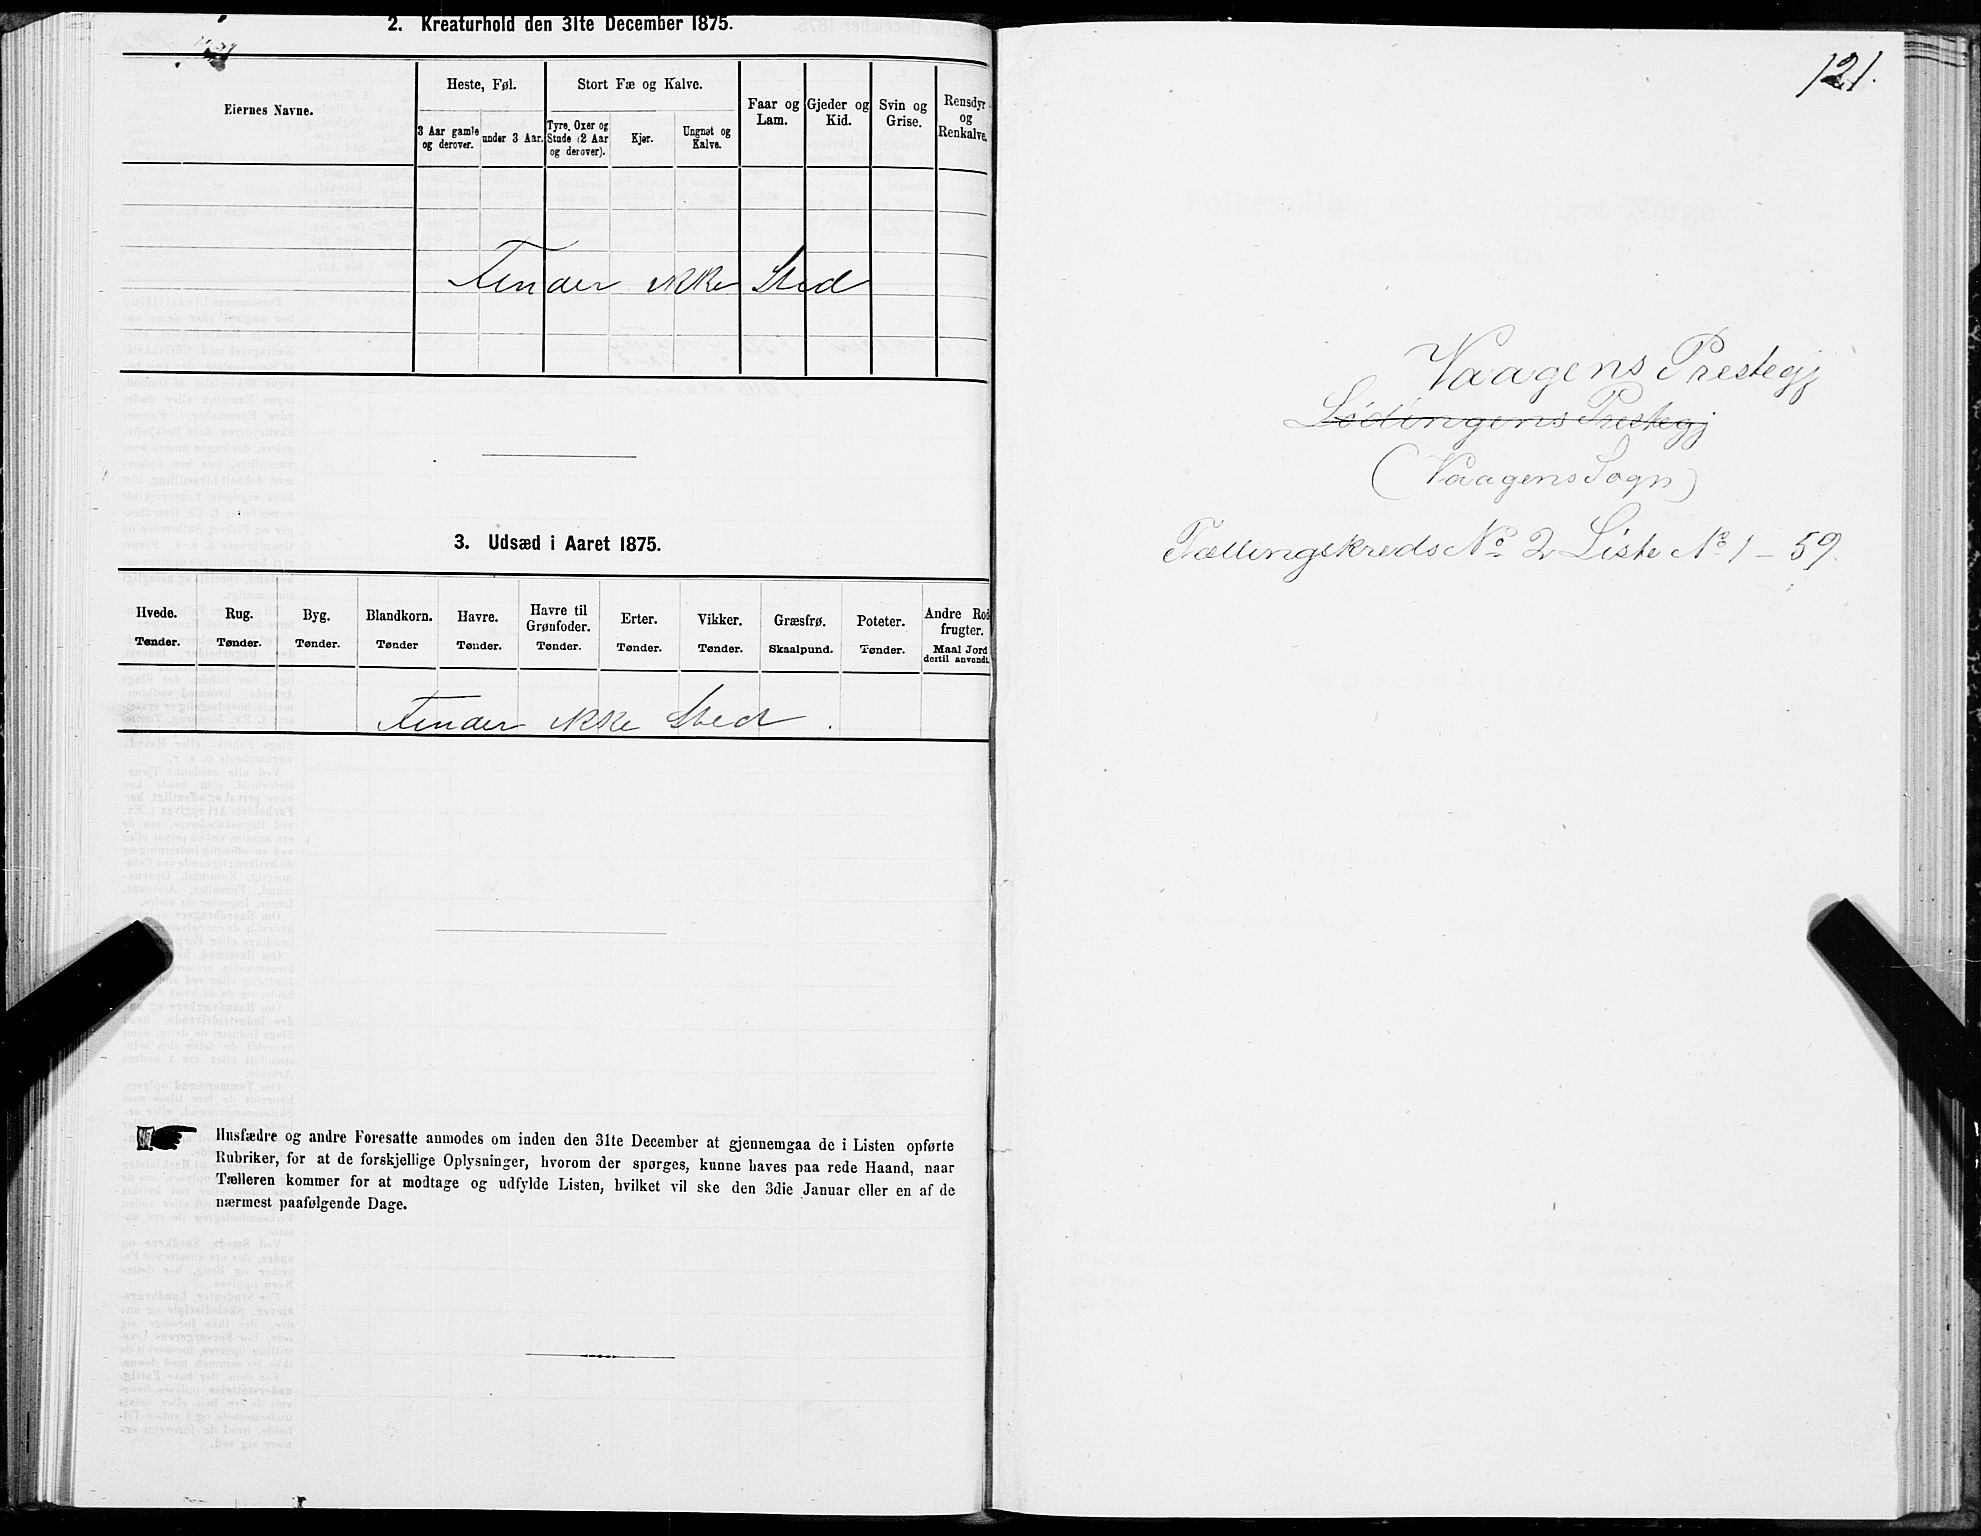 2. Kreaturhold den 31te December 1875.
Eiernes Navne.
Heste, Føl.
Stort Fæ og Kalve.
Faar og
Lam.
Gjeder og
Kid.
Svin og
Grise.
Rensdyr
og
Renkalve.
3 Aar gamle
og derover.
under 3 Aar.
Tyre, Oxer og
Stude (2 Aar
og derover).
Kjør.
Ungnøt og
Kalve.
Finder ikke Sted
3. Udsæd i Aaret 1875.
Hvede.
Tønder.
Rug.
Tønder.
Byg.
Tønder.
Blandkorn.
Tønder
Havre.
Tønder.
Havre til
Grønfoder.
Tønder.
Erter.
Tønder.
Vikker.
Tønder.
Græsfrø.
Skaalpund.
Poteter.
Tønder.
Andre Rod
frugter.
Maal Jord
dertil anvendt.
Finder ikke Sted.
Husfædre og andre Foresatte anmodes om inden den 31te December at gjennemgaa de i Listen opførte
Rubriker, for at de forskjellige Oplysninger, hvorom der spørges, kunne haves paa rede Haand, naar
Tælleren kommer for at modtage og udfylde Listen, hvilket vil ske den 3die Januar eller en af de
nærmest paafølgende Dage.
121.
Vaagens Prestegj
Lødingens Prestegj
(Vaagens Sogn)
Tællingskreds No 2 Liste No 1 - 59.